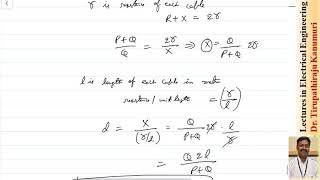 r is resistance of each cable
R + X = 2r
P+Q/Q = 2r/X ⇒ X = Q/P+Q 2r
l is length of each cable in meter
resistance / unit length = (r/l)
d = X/(r/l) = Q/P+Q 2r · l/r
= Q 2l/P+Q
Lectures in Electrical Engineering
Dr. Tirupathiraju Kanumuri